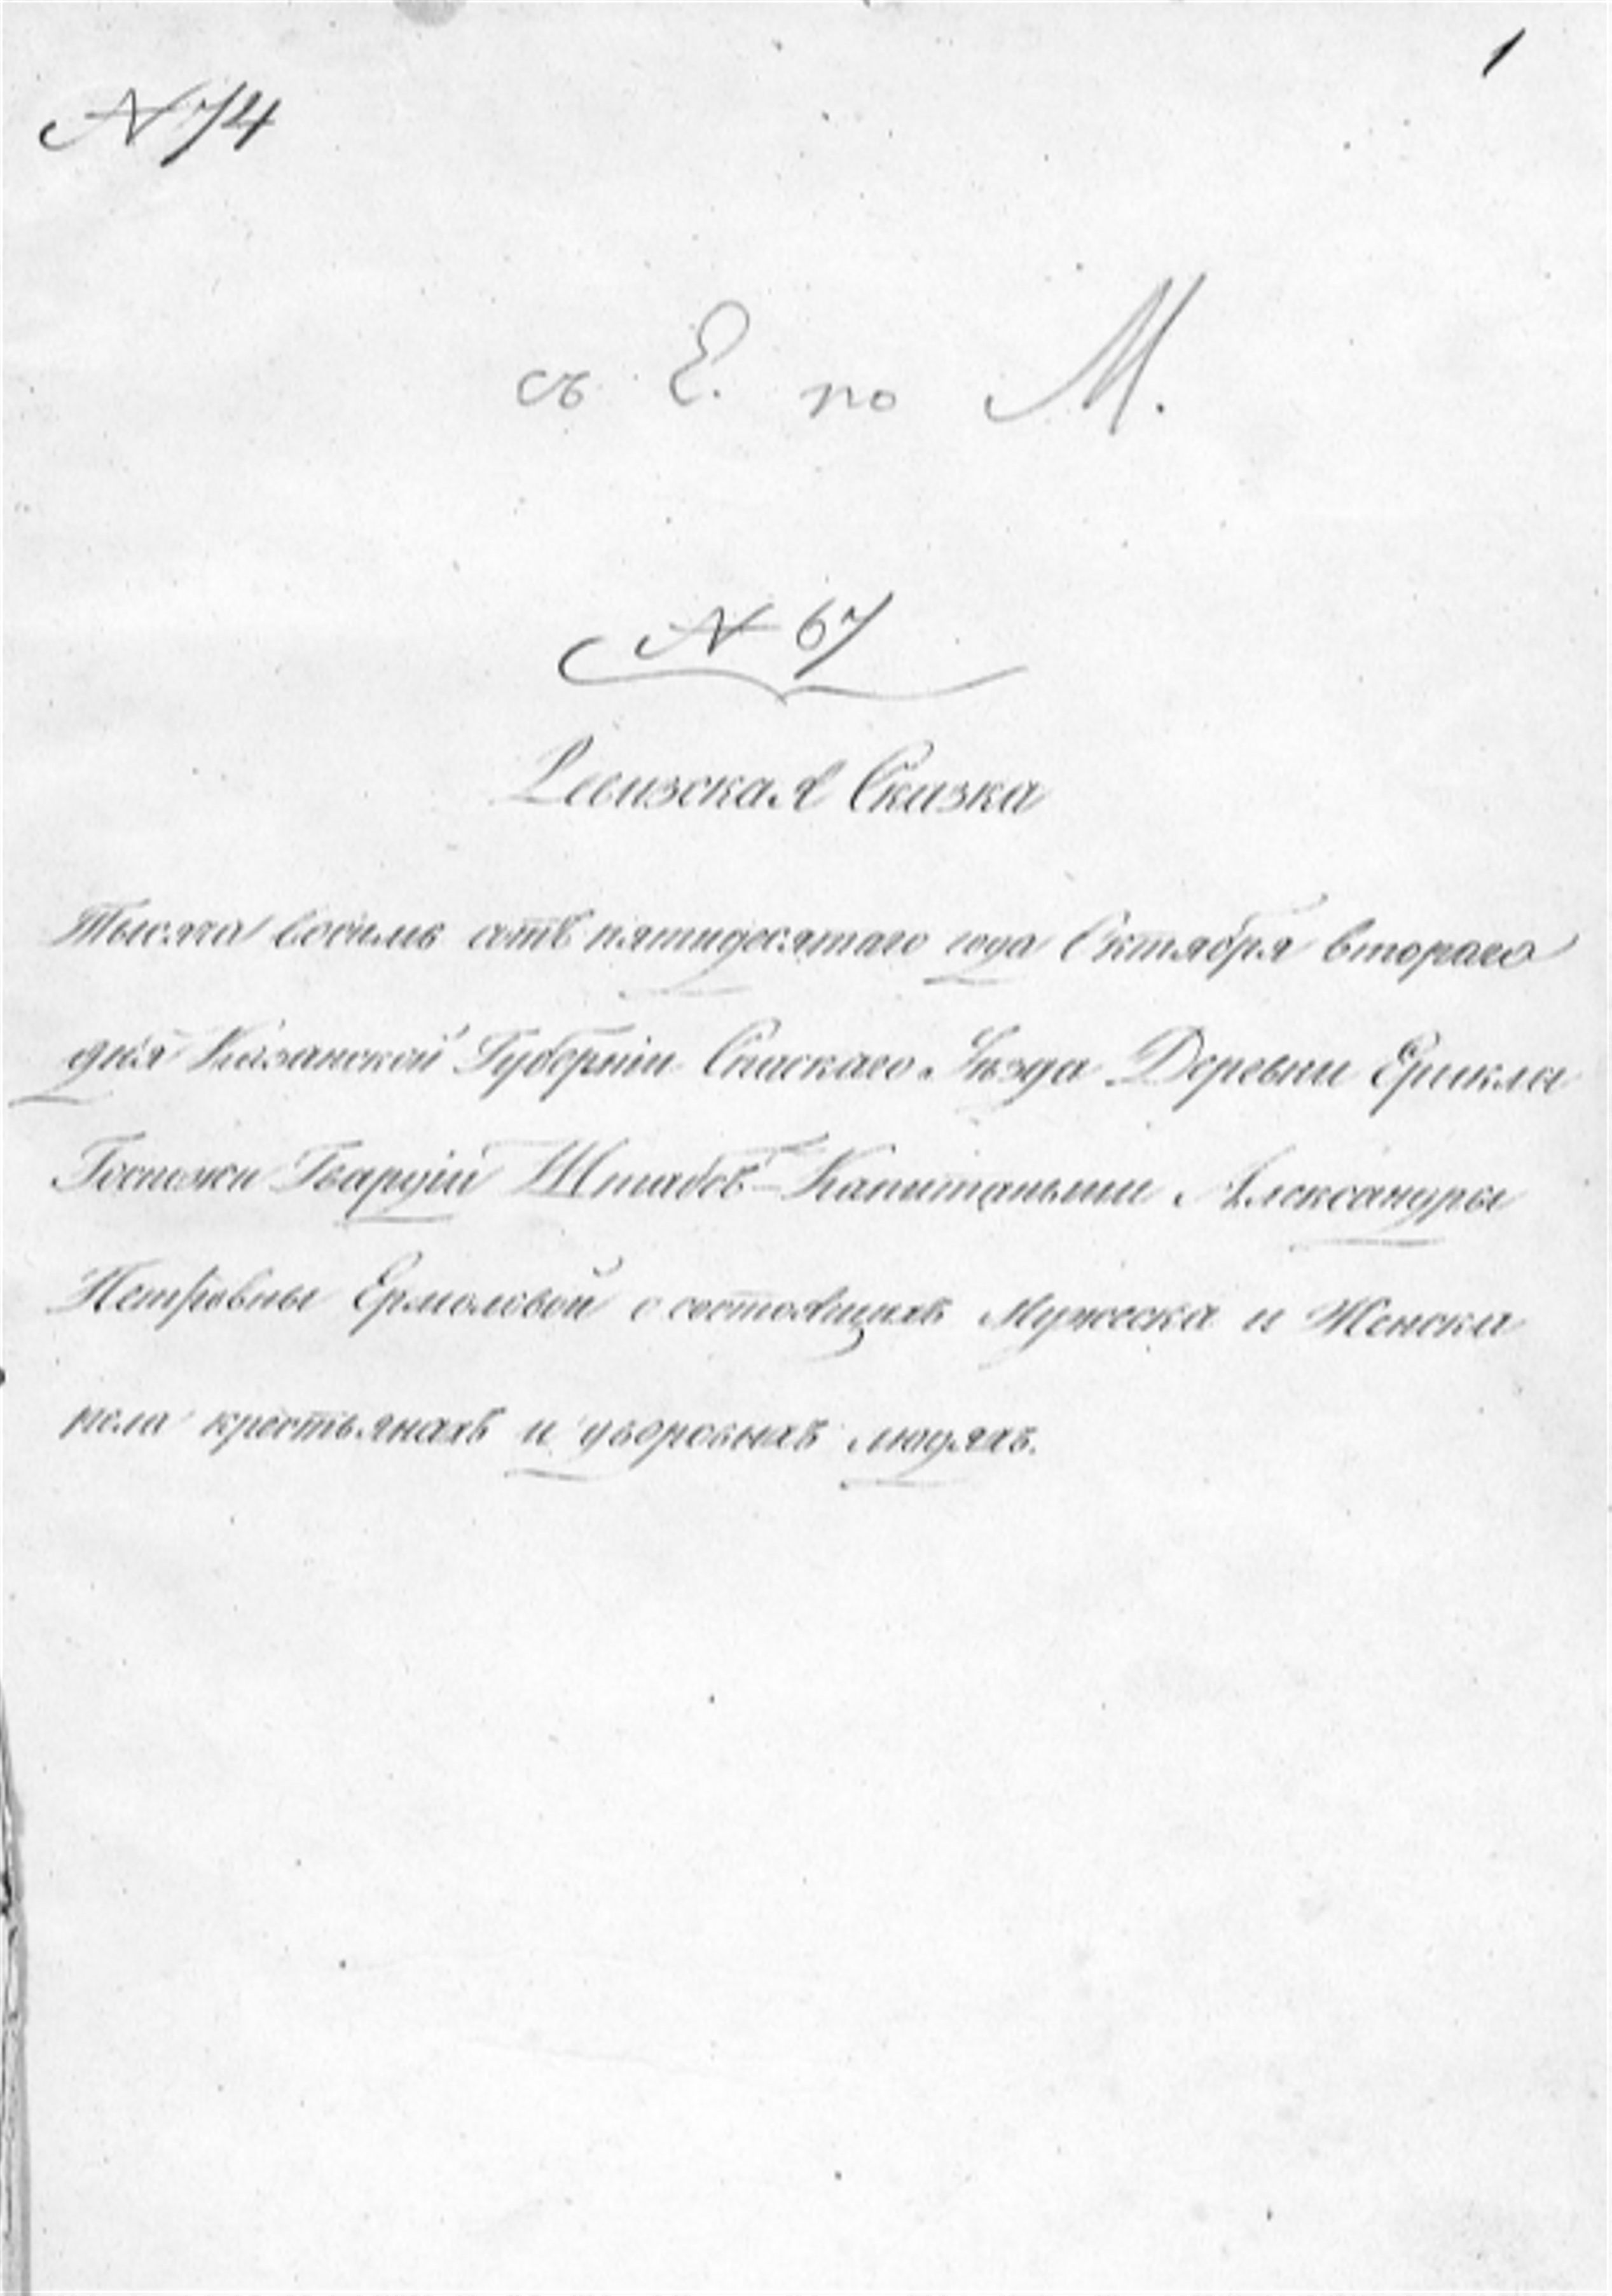 1
№ 74
съ Е. по М.
№ 67
Ревизская Сказка
Тысяча восемь сотъ пятидесятаго года Октября втораго
дня Казанской Губерніи Спаскаго Уѣзда Деревни Ериклы
Госпожи Гвардіи Штабсъ-Капитаньши Александры
Петровны Ермоловой о состоящихъ Мужеска и Женска
пола крестьянахъ и дворовыхъ людяхъ.